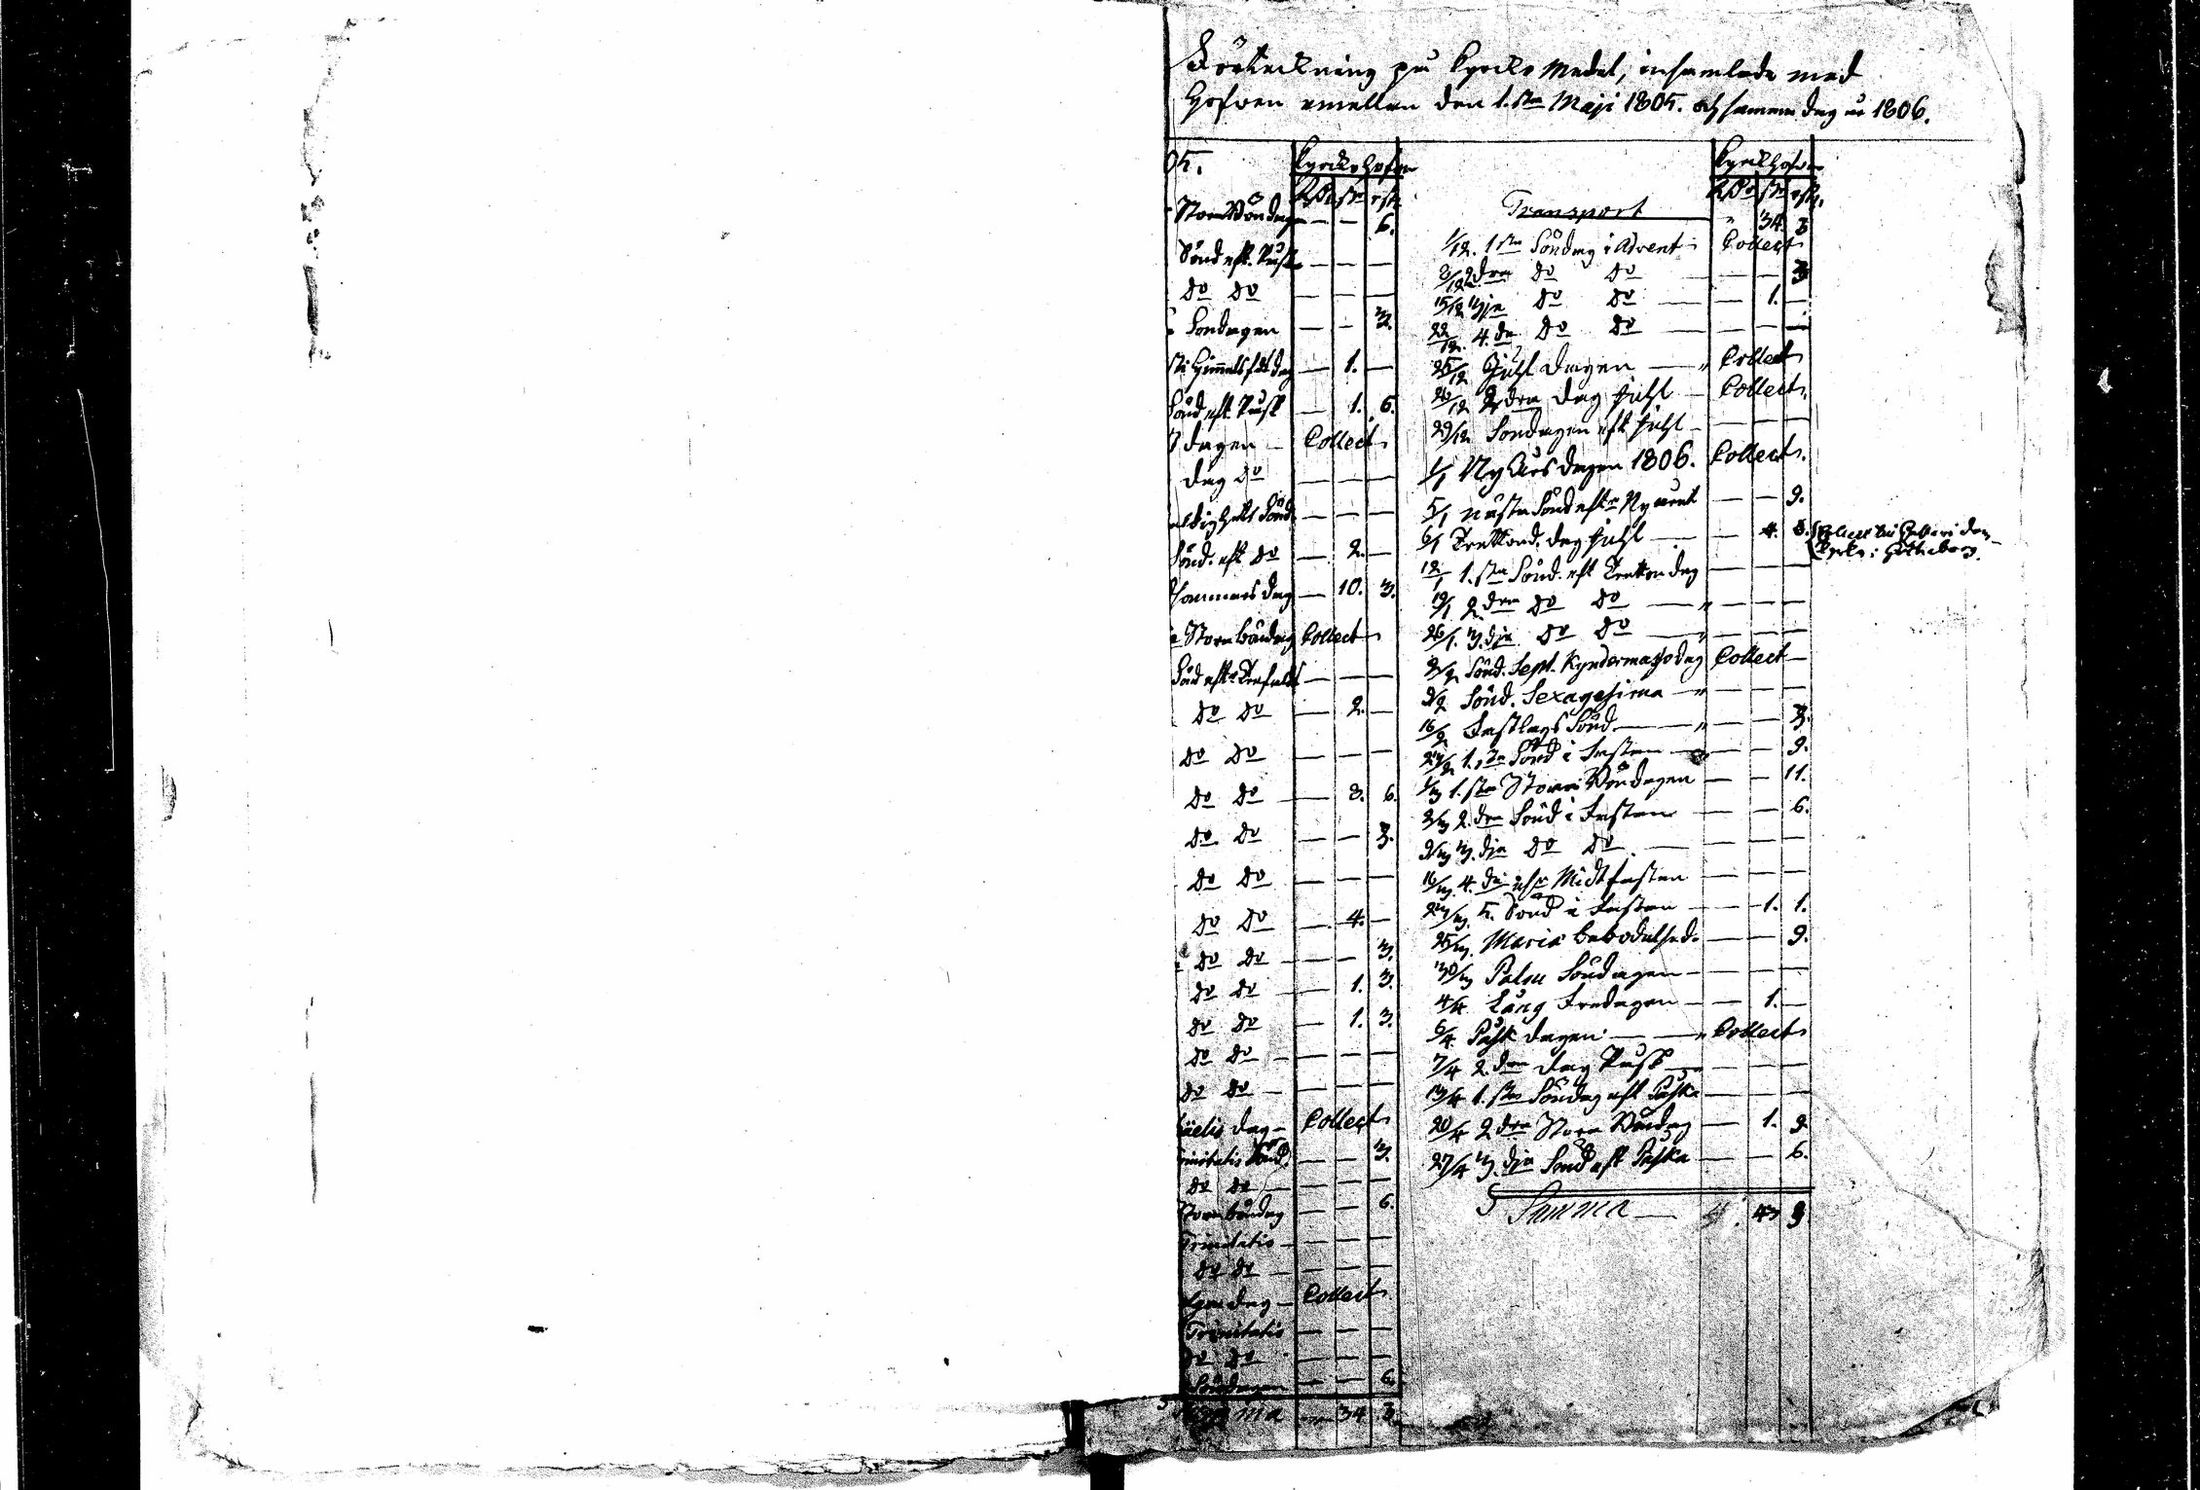 Förteckning på Kyrcko Medel, insamlade med
Hofven emellan den 1.sta Maji 1805. och samma dag år 1806.
05. Kyrcko hofven
Rdr sk rst.
Stora Bönedag — — 6.
Sönd. eft. Påsk — — —
do do — — —
Söndagen — — 3.
sti Himmelsfds dag — 1. —
Sönd eft. Påsk — 1. 6.
dagen — Collect
dag do — — —
aldighets Sönd. — — —
Sönd. eft do — 2. —
Johannis dag — 10. 3.
Stora böndag Collect
Sönd eftr Trefaldt — — —
do do — 2. —
do do — — —
do do — 8. 6.
do do — — 3.
do do — — —
do do — 4. —
do do — — 3.
do do — 1. 3.
do do — 1. 3.
do do — — —
do do — — —
aelis dag — Collect
Trinitatis Sönd — — 3.
do do — — —
Stora böndag — — 6.
Trinitatis — — —
do do — — —
dag — Collect
Trinitatis — — —
do do — — —
Söndagen — — 6.
Summa — 34. 3.
Kyrckhofven
Rdr sk rst.
Transport " 34. 3
1/12. 1sta Söndag i Advent — Collect
8/12 2dra do do — — — 3
15/12 3dje do do — — 1. —
22/12. 4.de do do — — — —
25/12 Juhl dagen — " Collect
26/12 2dra dag Juhl — Collect.
29/12 Söndagen eft Juhl — — — —
1/1 Ny Års dagen 1806. Collect.
5/1 nästa Sönd eftr Nyåret — — 9.
6/1 Trettond. dag Juhl — — 4. 8.
Kyrka i Götheborg.
12/1 1.sta Sönd. eft Tretton dag — — —
19/1 2dra do do — " — — —
26/1. 3.dje do do — " — — —
2/2 Sönd. Sept. Kyndermässodag Collect —
9/2 Sönd. Sexagesima — " — — —
16/2 Fastlags Sönd — " — — 3.
23/2 1.sta Sönd i Fastan — — — 9.
1/3 1.sta Stora Böndagen — — 11.
2/3 2.dra Sönd i Fastan — — 6.
9/3 3.dje do do — — — —
16/3. 4.de elr Midtfastan — — —
23/3 5. Sönd i Fastan — — 1. 1.
25/3. Mariæ bebodelsed. — — 9.
30/3 Palm Söndagen — — — —
4/4 Lång Fredagen — — 1. —
6/4 Påsk dagen — " Collect
7/4 2.dra dag Påsk — — — —
13/4 1.sta Söndag eft Påska — — —
20/4 2dra Stora Böndag — — 1. 9
27/4 3.dje Sönd eft Påska — — 6.
Summa — 43 9